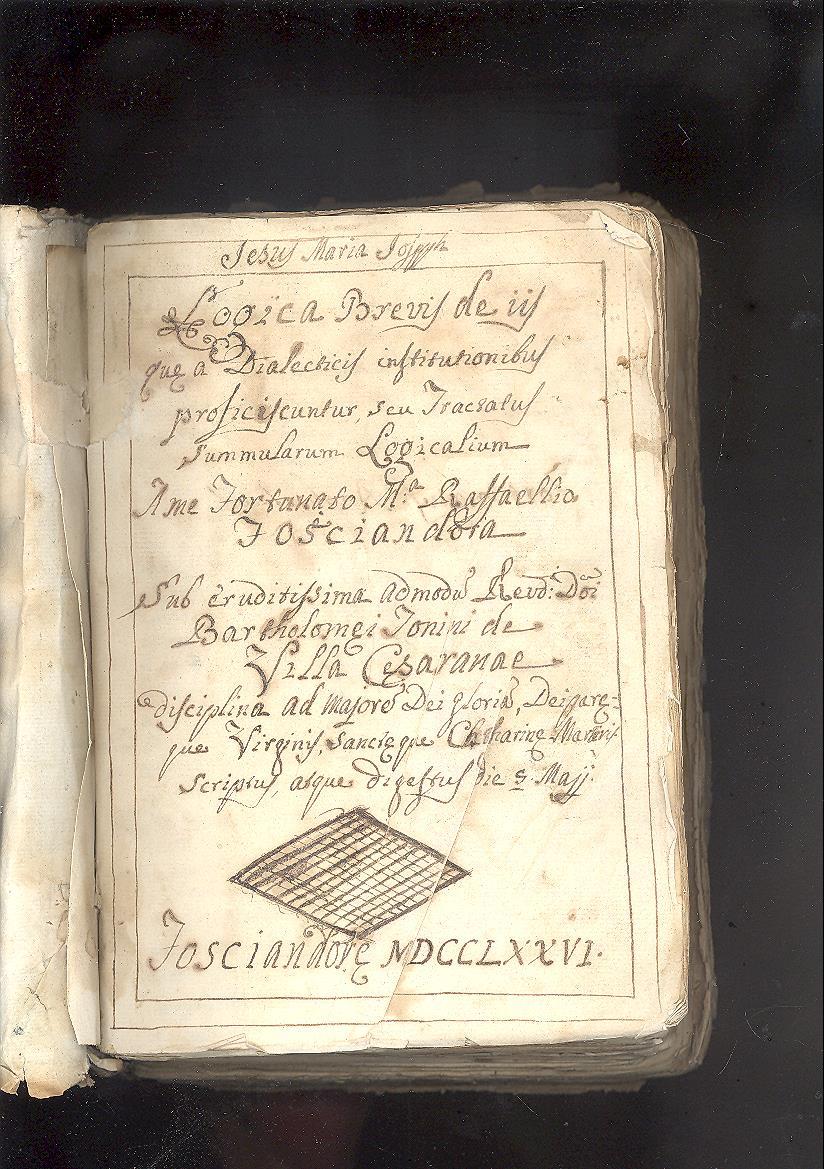 Jesus Maria Joseph
Logica Brevis de iis
quę a Dialecticis institutionibus
proficiscuntur, seu Tractatus
Summularum Logicalium
A me Fortunato M.ª Raffaellio
Fosciandora
Sub eruditissima admodũ Revd: Dñi
Bartholomęi Tonini de
Villa Cęsaranae
disciplina ad majorẽ Dei gloriã, Deiparę=
que Virginis, Sanctęque Chatharinę Martiris
Scriptus, atque digestus die Majj.
Fosciandorę MDCCLXXVI.